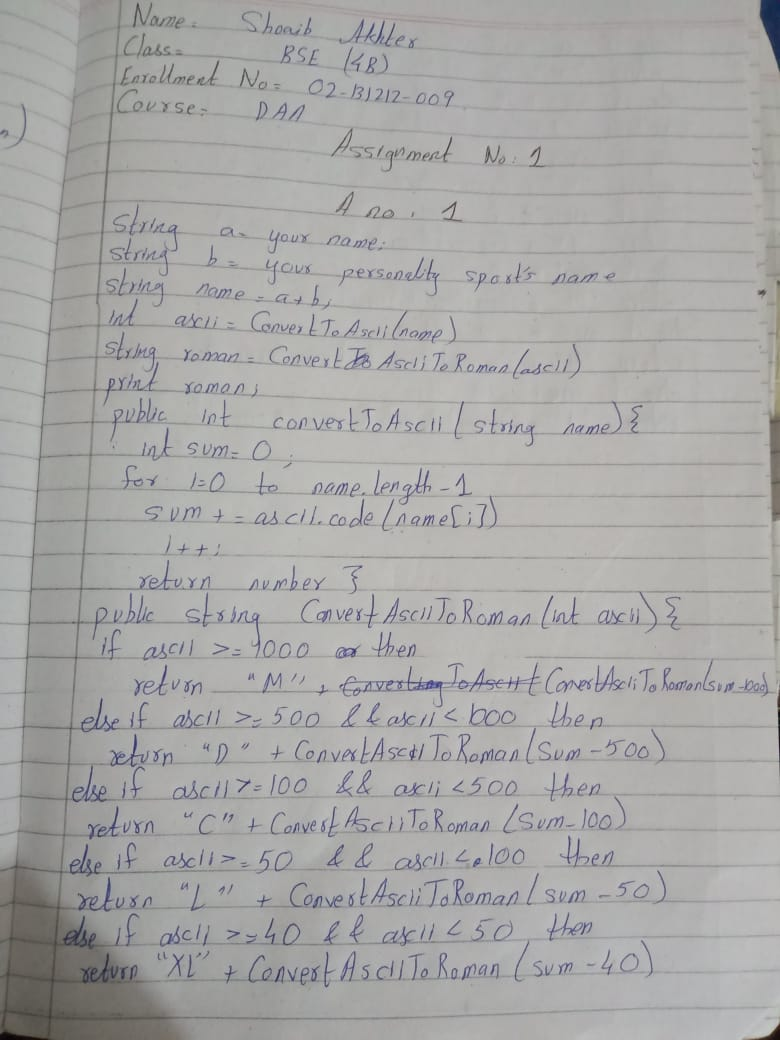 Name: Shoaib Akhter
Class= BSE (4B)
Enrollment No= 02-131212-009
Course: DAA
Assignment No: 1
A no. 1
string a= your name;
string b= your personality sport's name
string name = a+b;
int ascii = ConvertToAscii(name)
string roman = Convert AsciiToRoman(ascii)
print roman;
public int convertToAscii (string name) {
int sum= 0;
for i=0 to name.length-1
sum += ascii.code (name[i])
i++;
return number }
public string ConvertAsciiToRoman (int ascii) {
if ascii >= 1000 then
return "M" + ConvertAsciiToRoman(sum-1000)
else if ascii >= 500 && ascii < 1000 then
return "D" + ConvertAsciiToRoman (sum-500)
else if ascii >= 100 && ascii < 500 then
return "C" + ConvertAsciiToRoman (sum-100)
else if ascii >= 50 && ascii < 100 then
return "L" + ConvertAsciiToRoman (sum-50)
else if ascii >= 40 && ascii < 50 then
return "XL" + ConvertAsciiToRoman (sum-40)